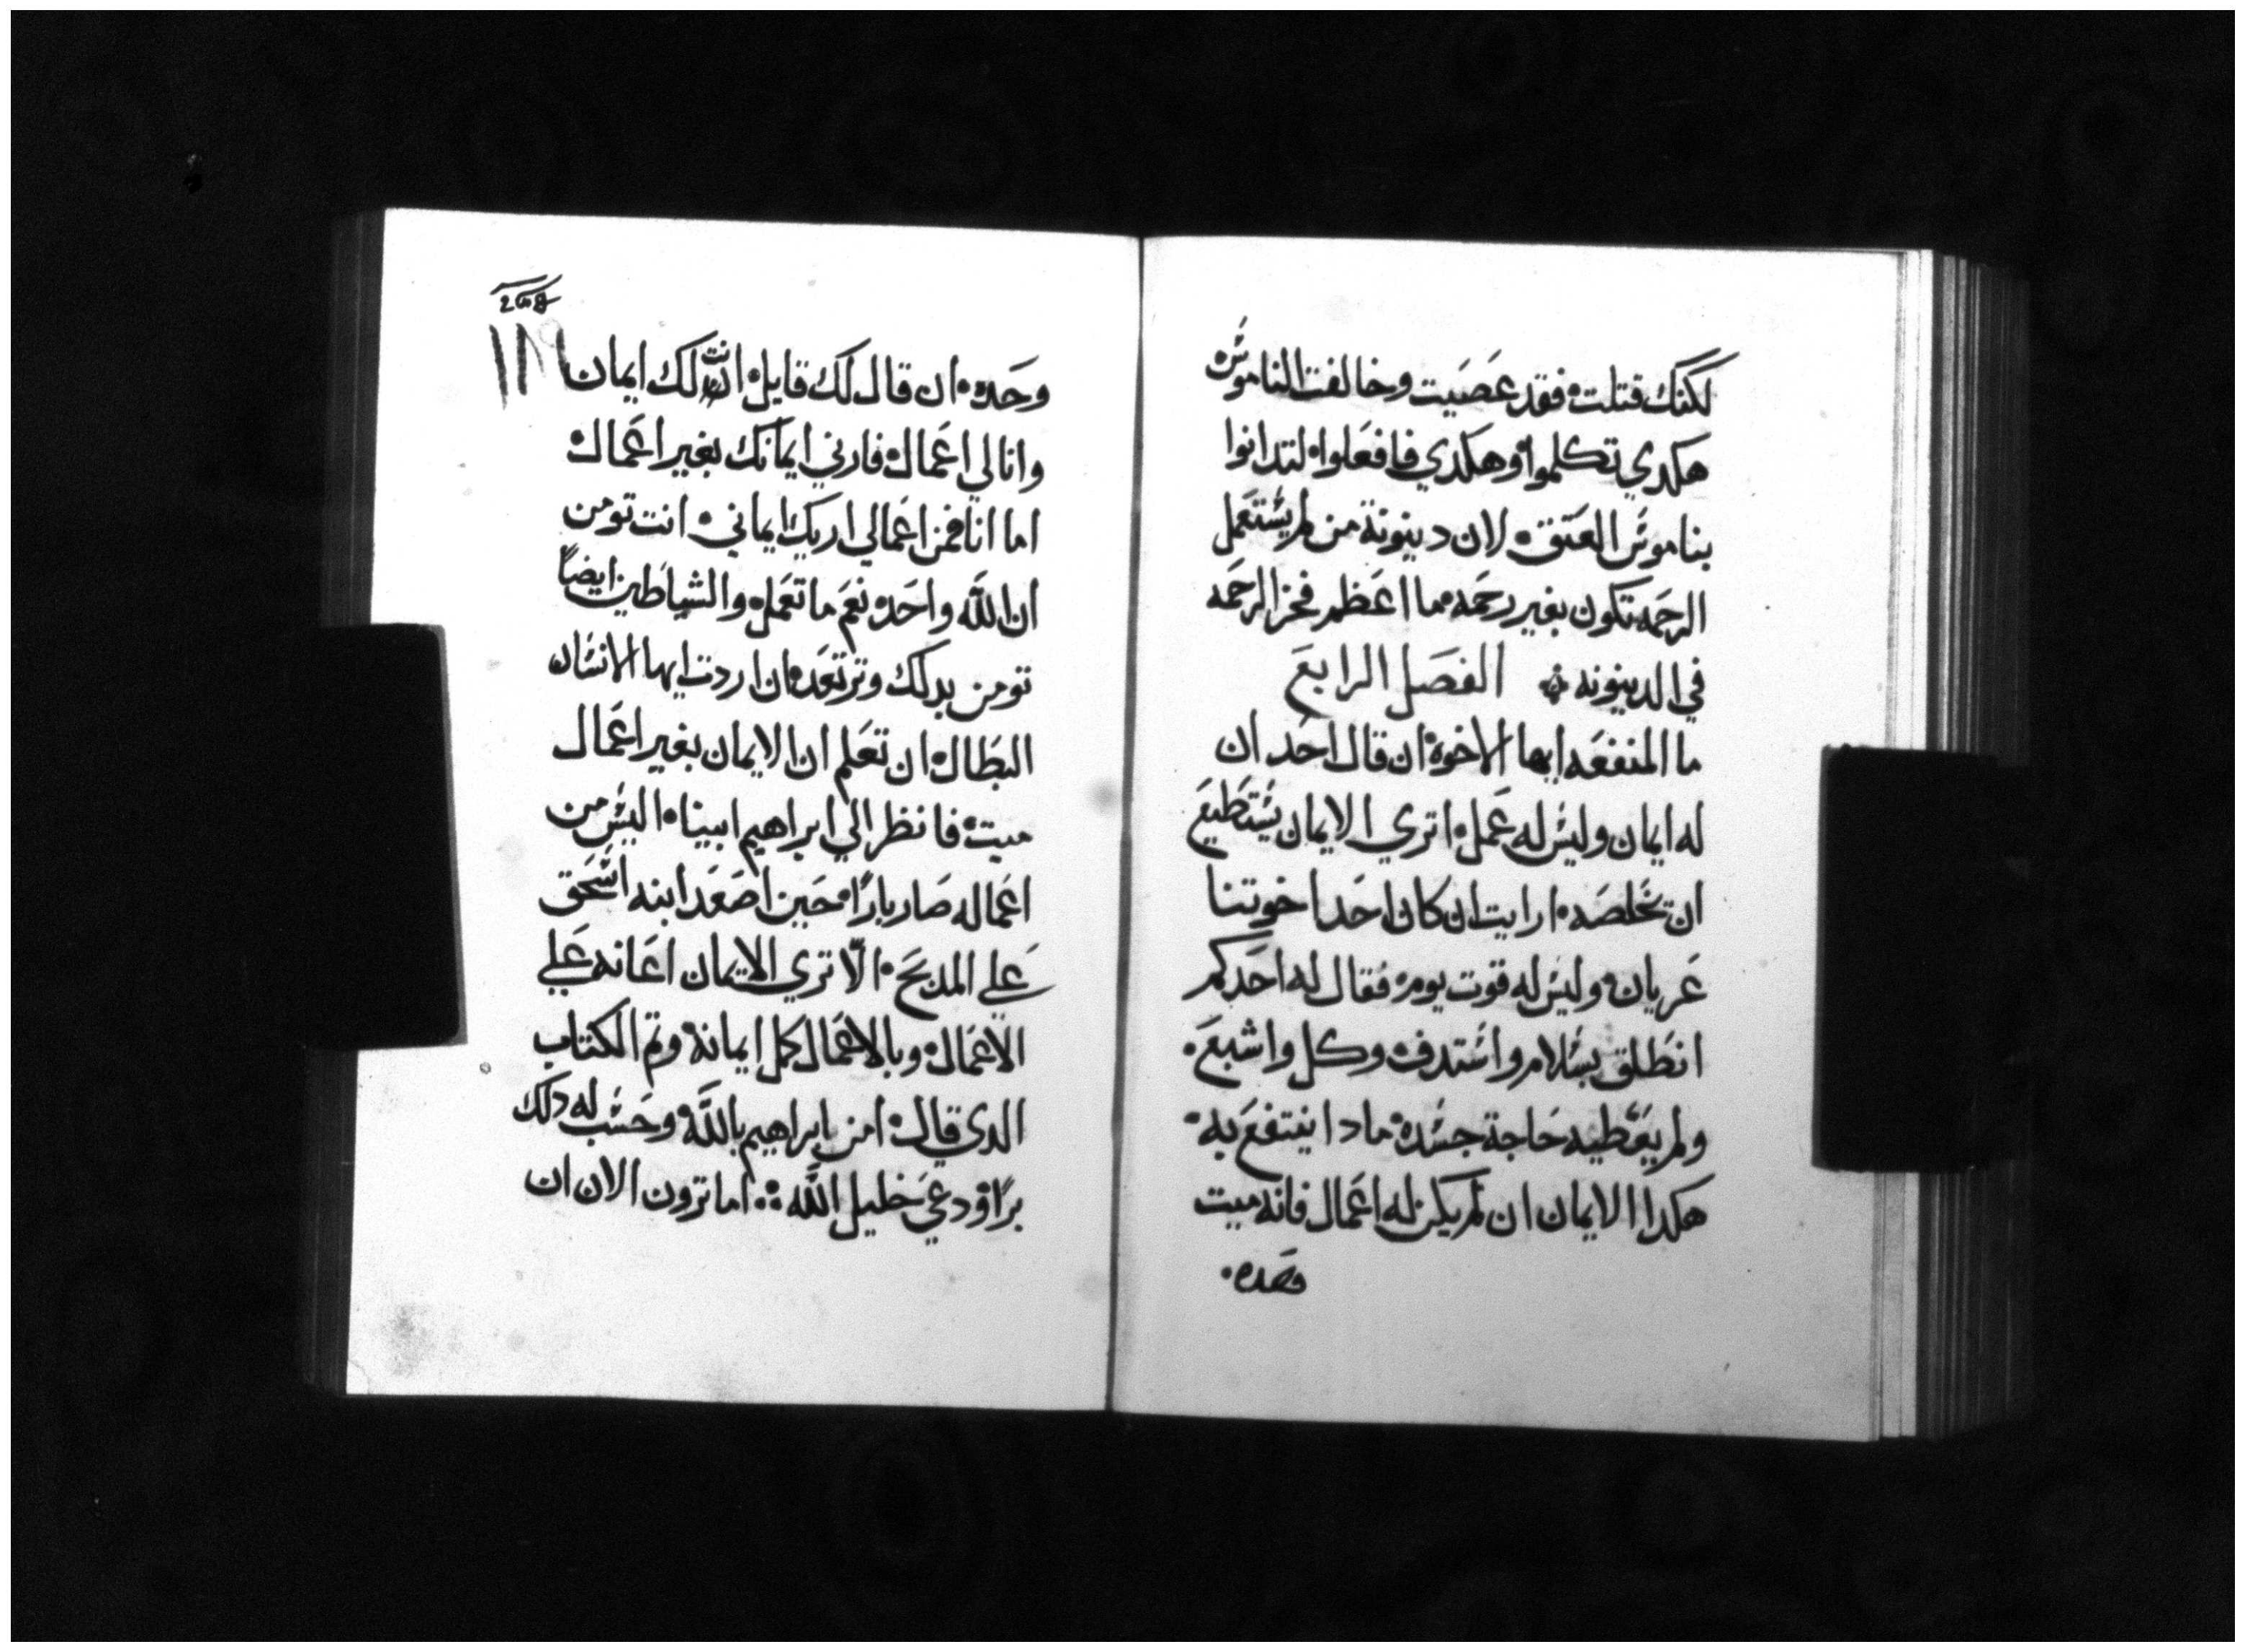 لكنك قتلت فقد عصيت وخالفت الناموس
هكدي تكلموا وهكدي فافعلوا لتدانوا
بناموس العتق لان دينونة من لم يستعمل
الرحمه تكون بغير رحمه ما اعظم فخر الرحمه
في الدينونه الفصل الرابع
ما المنفعه ايها الاخوة ان قال احد ان
له ايمان وليس له عمل اتري الايمان يستطيع
ان يخلصه ارايت ان كان احد اخوتنا
عريان وليس له قوت يومه فقال له احدكم
انطلق بسلام واستدف وكل واشبع
ولم يعطيه حاجة جسده مادا ينتفع به
هكدا الايمان ان لم يكن له اعمال فانه ميت
وحده
١١٩
وحده ان قال لك قايل انت لك ايمان
وانا لي اعمال فارني ايمانك بغير اعمال
اما انا فمن اعمالي اريك ايماني انت تومن
ان الله واحد نعم ما تعمل والشياطين ايضاً
تومن بدلك وترتعد ان اردت ايها الانسان
البطال ان تعلم ان الايمان بغير اعمال
ميت فانظر الي ابراهيم ابينا اليس من
اعماله صار باراً حين اصعد ابنه اسحق
علي المدبح الا تري الايمان اعانه علي
الاعمال وبالاعمال كمل ايمانه وتم الكتاب
الدي قال امن ابراهيم بالله وحسب له دلك
براً ودعي خليل الله اما ترون الان ان